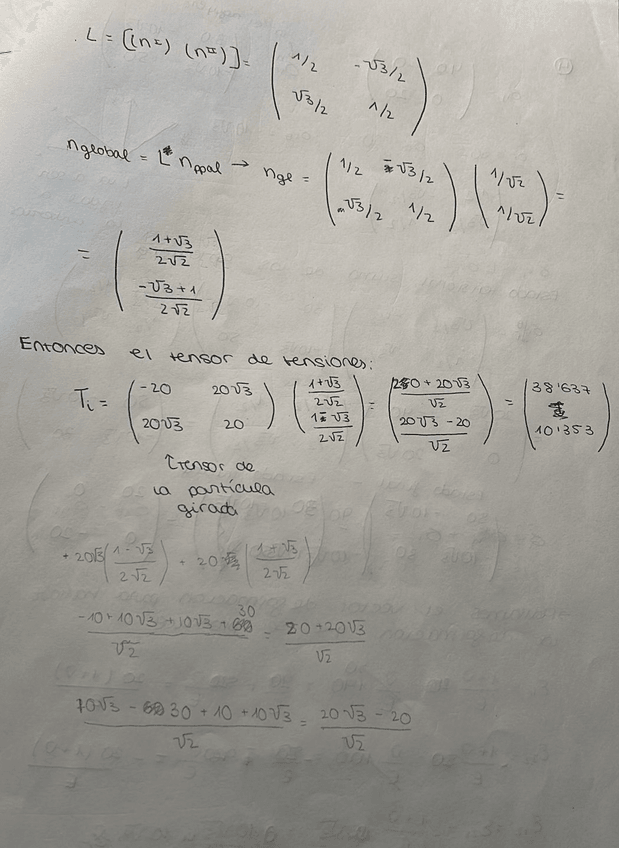 L = [(nᴵ) (nᴵᴵ)] = ( 1/2 -√3/2 ; √3/2 1/2 )
nglobal = L* nppal → nge = ( 1/2 -√3/2 ; -√3/2 1/2 ) ( 1/√2 ; 1/√2 ) =
= ( (1+√3)/(2√2) ; (-√3+1)/(2√2) )
Entonces el tensor de tensiones:
Ti = ( -20 20√3 ; 20√3 20 ) ( (1+√3)/(2√2) ; (1-√3)/(2√2) ) = ( (20+20√3)/√2 ; (20√3-20)/√2 ) = ( 38'637 ; 10'353 )
tensor de
la partícula
girada
+ 20√3 ( (1-√3)/(2√2) ) + 20√3 ( (1+√3)/(2√2) )
(-10+10√3+10√3+30)/√2 = (20+20√3)/√2
(10√3 - 30 + 10 + 10√3)/√2 = (20√3 - 20)/√2